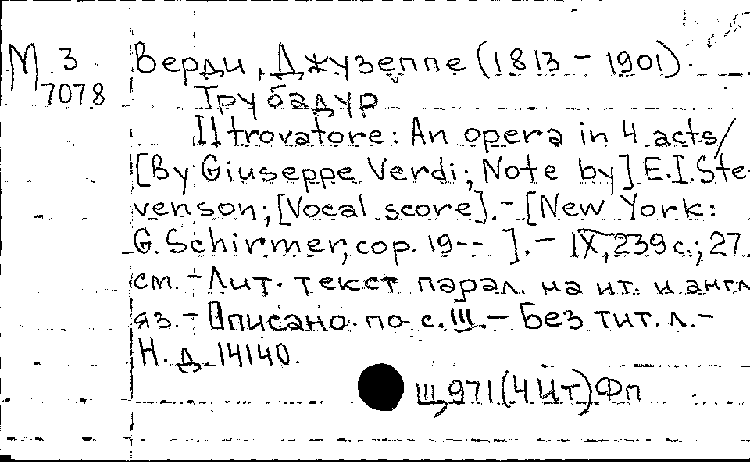 М 3
7078
Верди, Джузеппе (1813 - 1901).
Трубадур
Il trovatore: An opera in 4 acts/
[By Giuseppe Verdi; Note by] E.I.Ste-
venson; [Vocal score]. - [New York:
G. Schirmer, cop. 19-- ]. - IX, 239 с.; 27
см. - Лит. текст парал. на ит. и англ
яз. - Описано по с. III. - Без тит. л. -
Н. д. 14140.
Щ971(4Ит)Фп